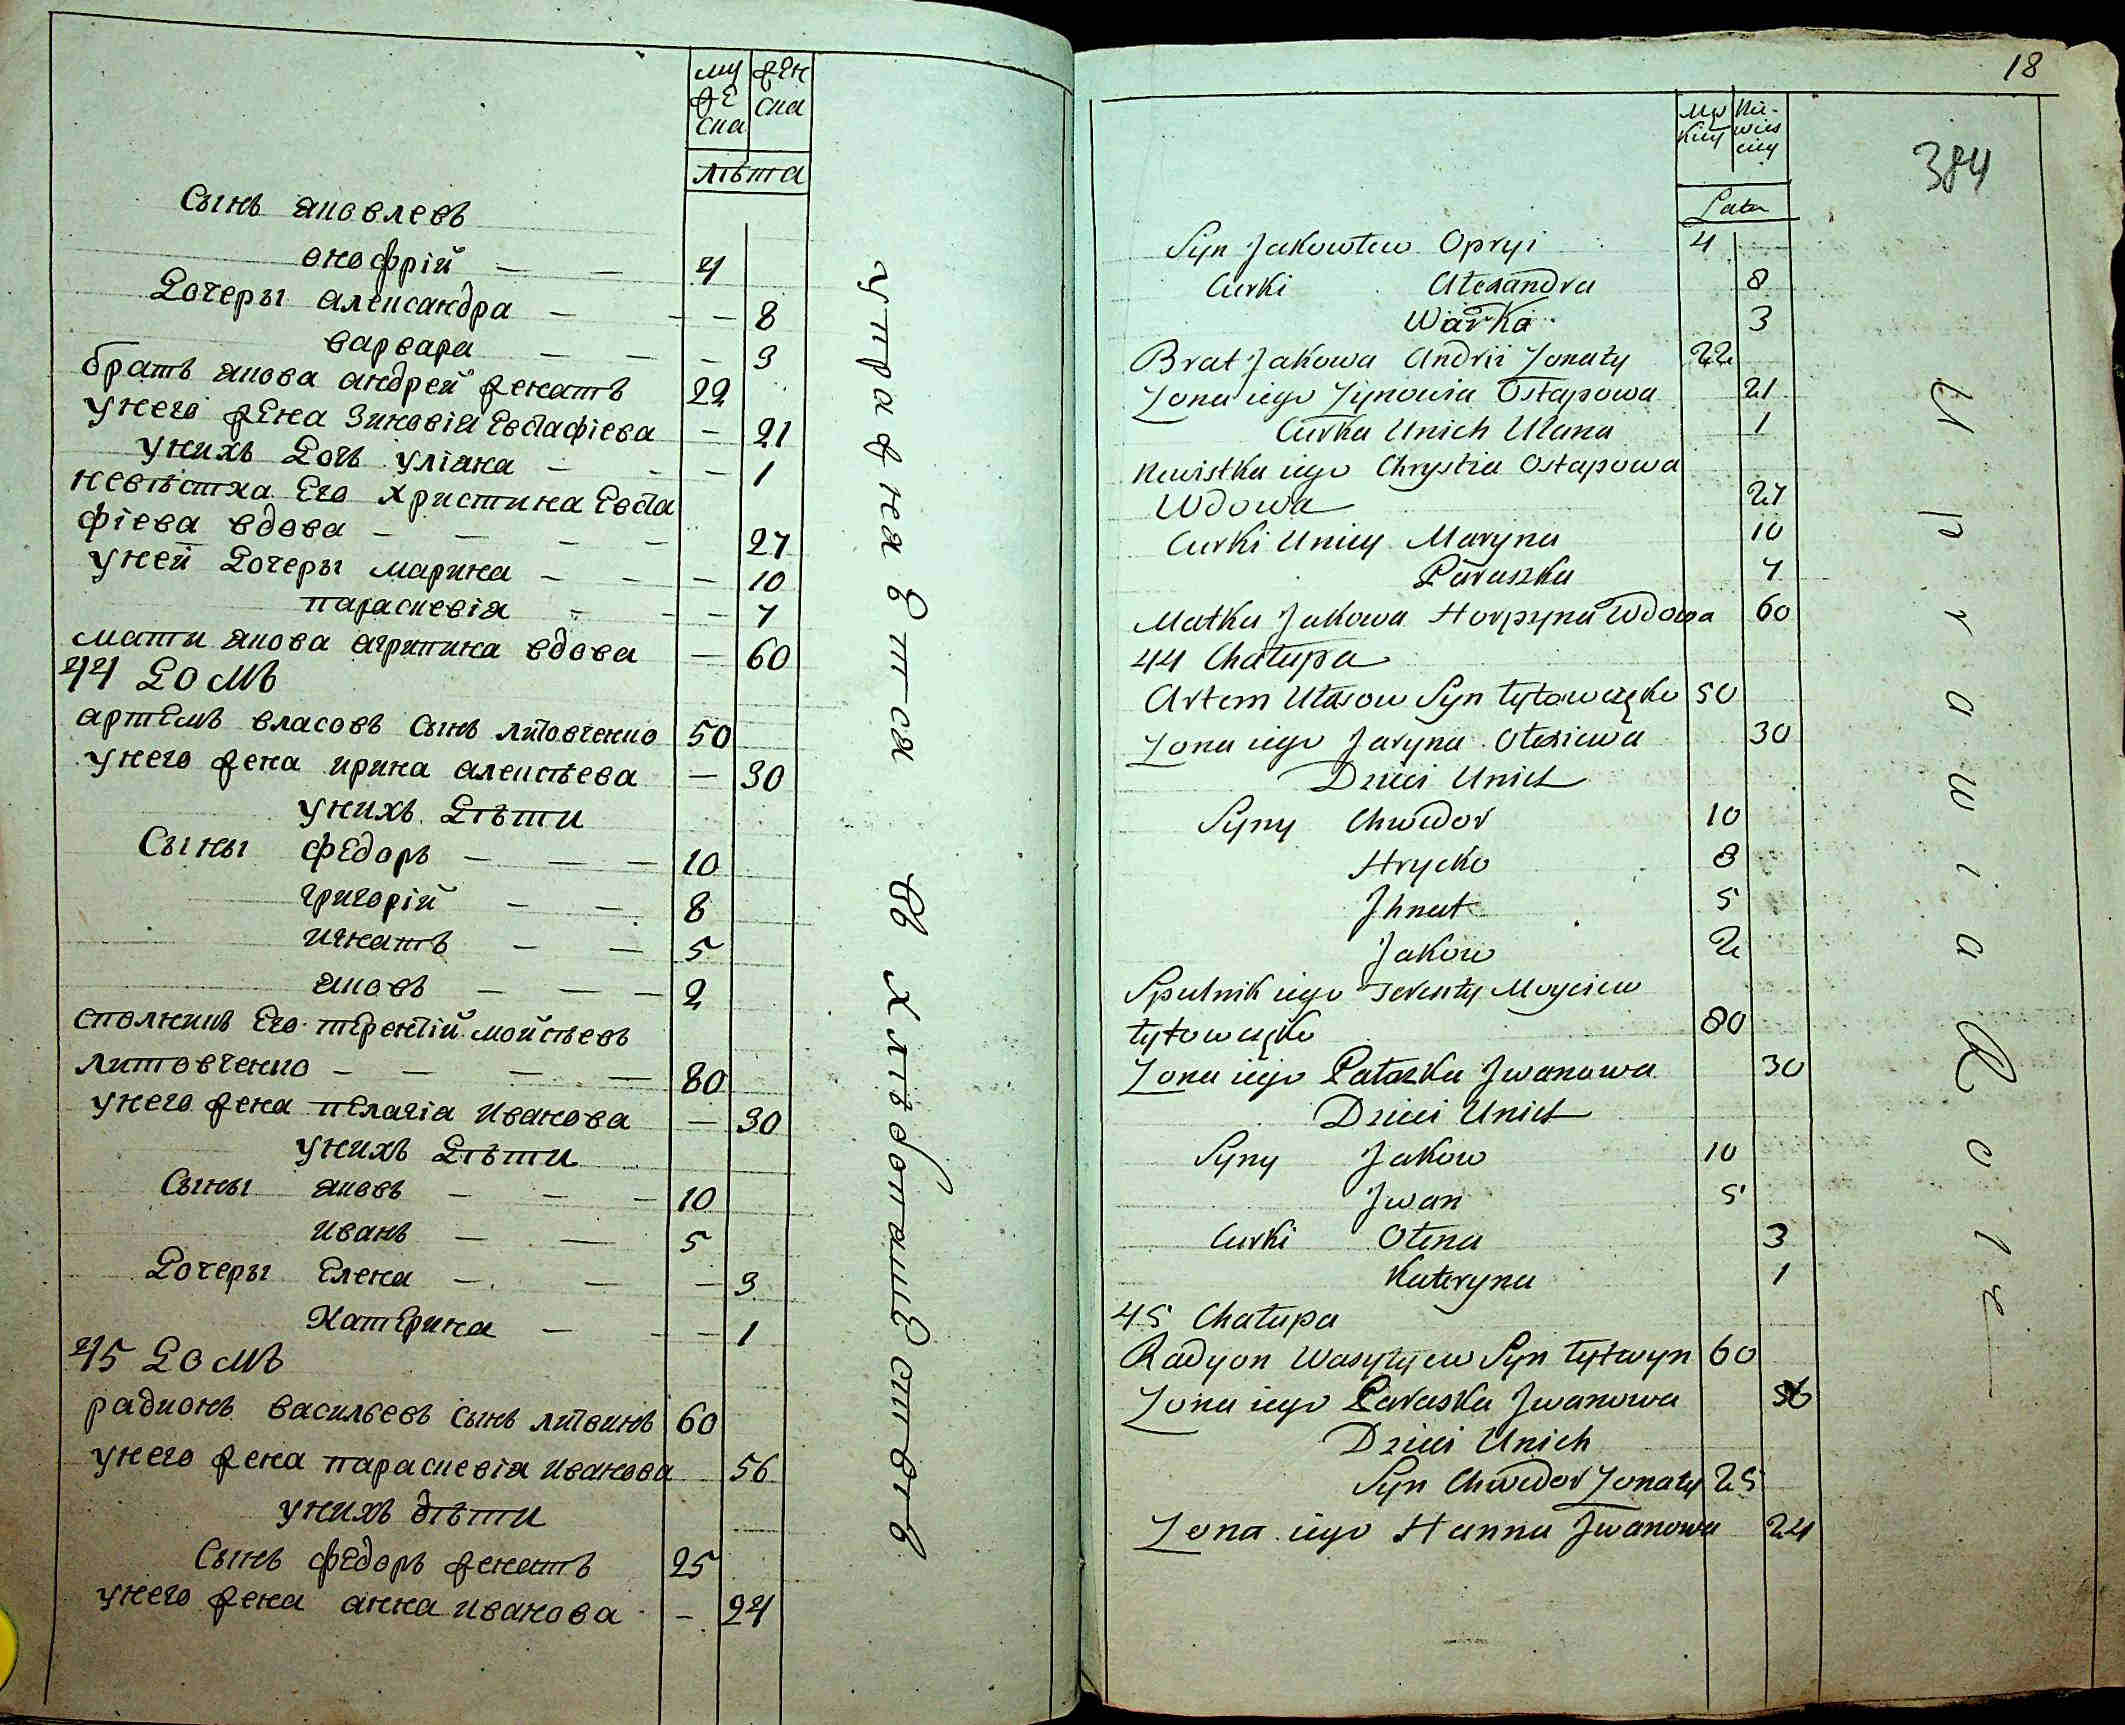 му
же
ска
жен
ска
лѣта
Сынъ яковлевъ
онофрій — — 4
Дочеры александра — — — 8
варвара — — — 3
братъ якова андрей женатъ 22
унего жена зиновія Евстафіева — 21
унихъ Дочъ уліяна — — — 1
невѣстка Его христина Евста
фіева вдова — — — — 27
уней Дочеры марина — — — 10
параскевія — — — 7
мати якова агрипина вдова — 60
44 Домъ
артемъ власовъ сынъ литовченко 50
унего жена ирина алексѣева — 30
унихъ Дѣти
Сыны федоръ — — — 10
григорій — — 8
игнатъ — — 5
яковъ — — — 2
сполникъ Его терентій мойсѣевъ
литовченко — — — — 80
унего жена пелагія иванова — 30
унихъ Дѣти
Сыны яковъ — — — 10
иванъ — — 5
Дочеры Елена — — — 3
Катерина — — — 1
45 Домъ
радионъ васильевъ сынъ литвинъ 60
унего жена параскевія иванова 56
унихъ дѣти
Сынъ федоръ женатъ 25
унего жена анна иванова — 24
упражнается въ хлѣбопашествѣ
18
384
Mę
skiey
Nie-
wies
ciey
Lata
Syn Jakowlew Opryi 4
Curki Alexandra 8
Warka 3
Brat Jakowa Andrii Zonaty 22
Zona iego Zynowia Ostapowa 21
Curka Unich Ulana 1
Newistka iego Chrystia Ostapowa
Wdowa 27
Curki Uniey Maryna 10
Paraszka 7
Matka Jakowa Horpyna Wdowa 60
44 Chałupa
Artem Ułasow Syn Łytowczęko 50
Zona iego Jaryna Ołexiewa 30
Dzieci Unich
Syny Chwedor 10
Hrycko 8
Jhnat 5
Jakow 2
Spulnik iego Terenty Moyciew
Łytowczęko 80
Zona iego Pałazka Jwanowa 30
Dzieci Unich
Syny Jakow 10
Jwan 5
Curki Ołena 3
Kateryna 1
45 Chałupa
Radyon Wasylyew Syn Łytwyn 60
Zona iego Paraska Jwanowa 56
Dzieci Unich
Syn Chwedor Zonaty 25
Zona iego Hanna Jwanowa 24
Uprawia Role